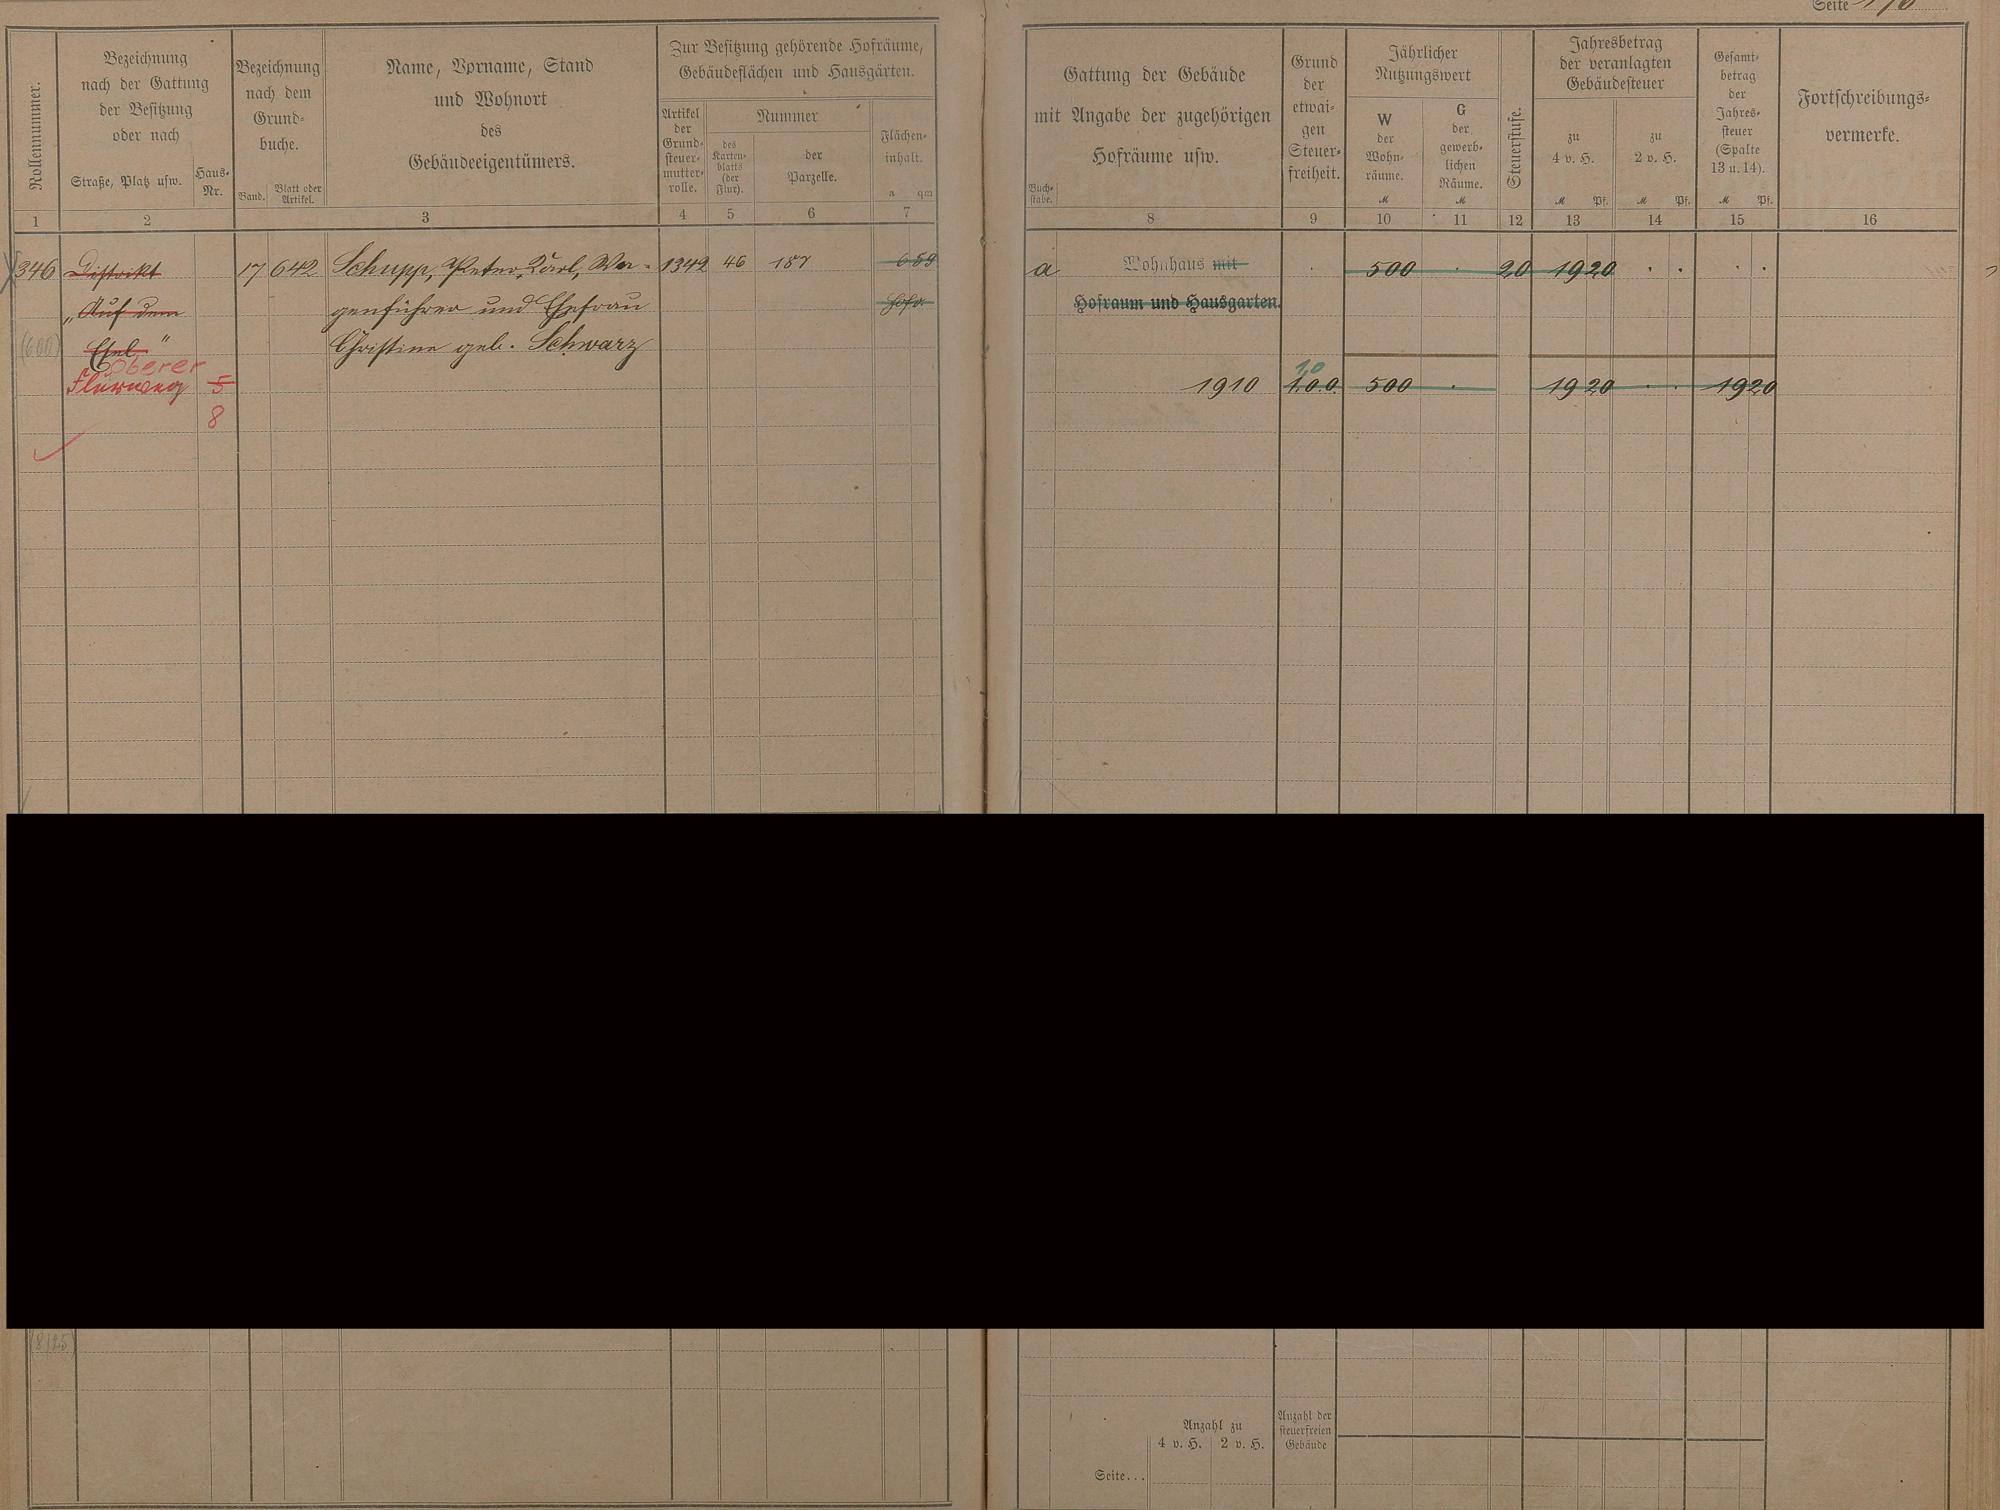 Seite
Rollennummer.
Bezeichnung
nach der Gattung
der Besitzung
oder nach
Straße, Platz usw.
Haus-
Nr.
Bezeichnung
nach dem
Grund-
buche.
Band.
Blatt oder
Artikel.
Name, Vorname, Stand
und Wohnort
des
Gebäudeeigentümers.
Zur Besitzung gehörende Hofräume,
Gebäudeflächen und Hausgärten.
Artikel
der
Grund-
steuer-
mutter-
rolle.
Nummer
des
Karten-
blatts
(der
Flur).
der
Parzelle.
Flächen-
inhalt.
a qm
1 2 3 4 5 6 7
346 Distrikt 17 642 Schupp, Peter, Karl, Wa- 1342 46 187 6 59
„Auf dem genführer und Ehefrau Hofr.
(600) Esel" Christine geb. Schwarz
Oberer
Flurweg 5
8
Gattung der Gebäude
mit Angabe der zugehörigen
Hofräume usw.
Buch-
stabe.
Grund
der
etwai-
gen
Steuer-
freiheit.
Jährlicher
Nutzungswert
W
der
Wohn-
räume.
M
G
der
gewerb-
lichen
Räume.
M
Steuerstufe.
Jahresbetrag
der veranlagten
Gebäudesteuer
zu
4 v. H.
M Pf.
zu
2 v. H.
M Pf.
Gesamt-
betrag
der
Jahres-
steuer
(Spalte
13 u. 14).
M Pf.
Fortschreibungs-
vermerke.
8 9 10 11 12 13 14 15 16
a Wohnhaus mit . 500 . 20 19 20 . . . .
Hofraum und Hausgarten.
1,0
1910 1.0.0. 500 . 19 20 . . 19 20
(8/25)
Anzahl zu
4 v. H. 2 v. H.
Anzahl der
steuerfreien
Gebäude
Seite...